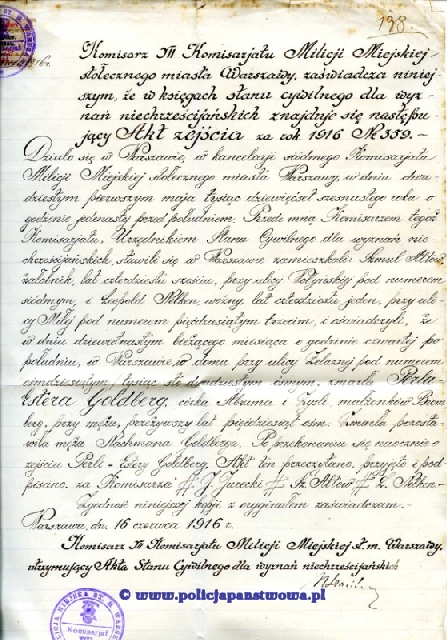 138
Komisarz VII Komisarjatu Milicji Miejskiej
stołecznego miasta Warszawy, zaświadcza niniej
szym, że w księgach stanu cywilnego dla wyz
nań niechrześcijańskich znajduje się następu
jący Akt zejścia za rok 1916 № 359.
Działo się w Warszawie, w kancelaryi siódmego Komisarjatu
Milicji Miejskiej stołecznego miasta Warszawy, w dniu dwu
dziestym pierwszym maja tysiąc dziewięćset szesnastego roku o
godzinie jedenastej przed południem. Przede mną Komisarzem tegoż
Komisarjatu, Urzędnikiem Stanu Cywilnego dla wyznań nie
chrześcijańskich, stawili się w Warszawie zamieszkali: Szmul
lat czterdzieści sześć, przy ulicy Wołyńskiej pod numerem
siódmym, i Leopold woźny, lat czterdzieści jeden, przy uli
cy Miłej pod numerem pięćdziesiątym trzecim, i oświadczyli, że
w dniu dziewiętnastym bieżącego miesiąca o godzinie czwartej po
południu, w Warszawie, w domu przy ulicy Żelaznej pod numerem
osiemdziesiątym, tysiąc sto zmarła Perla
Estera Goldberg, córka Abrama i małżonków
przy mężu, przeżywszy lat pięćdziesiąt ośm. Zmarła pozosta
wiła męża Nachmana Goldberga. Po przekonaniu się naocznie o
zejściu Perli-Estery Goldberg, Akt ten przeczytano, przyjęto i pod
pisano. za Komisarza J. Jurecki
Zgodność niniejszej kopji z oryginałem zaświadczam.-
Warszawa, dn. 16 czerwca 1916 r.
Komisarz VII Komisarjatu Milicji Miejskiej st. m. Warszawy,
utrzymujący Akta Stanu Cywilnego dla wyznań niechrześcijańskich
© www.policjapanstwowa.pl